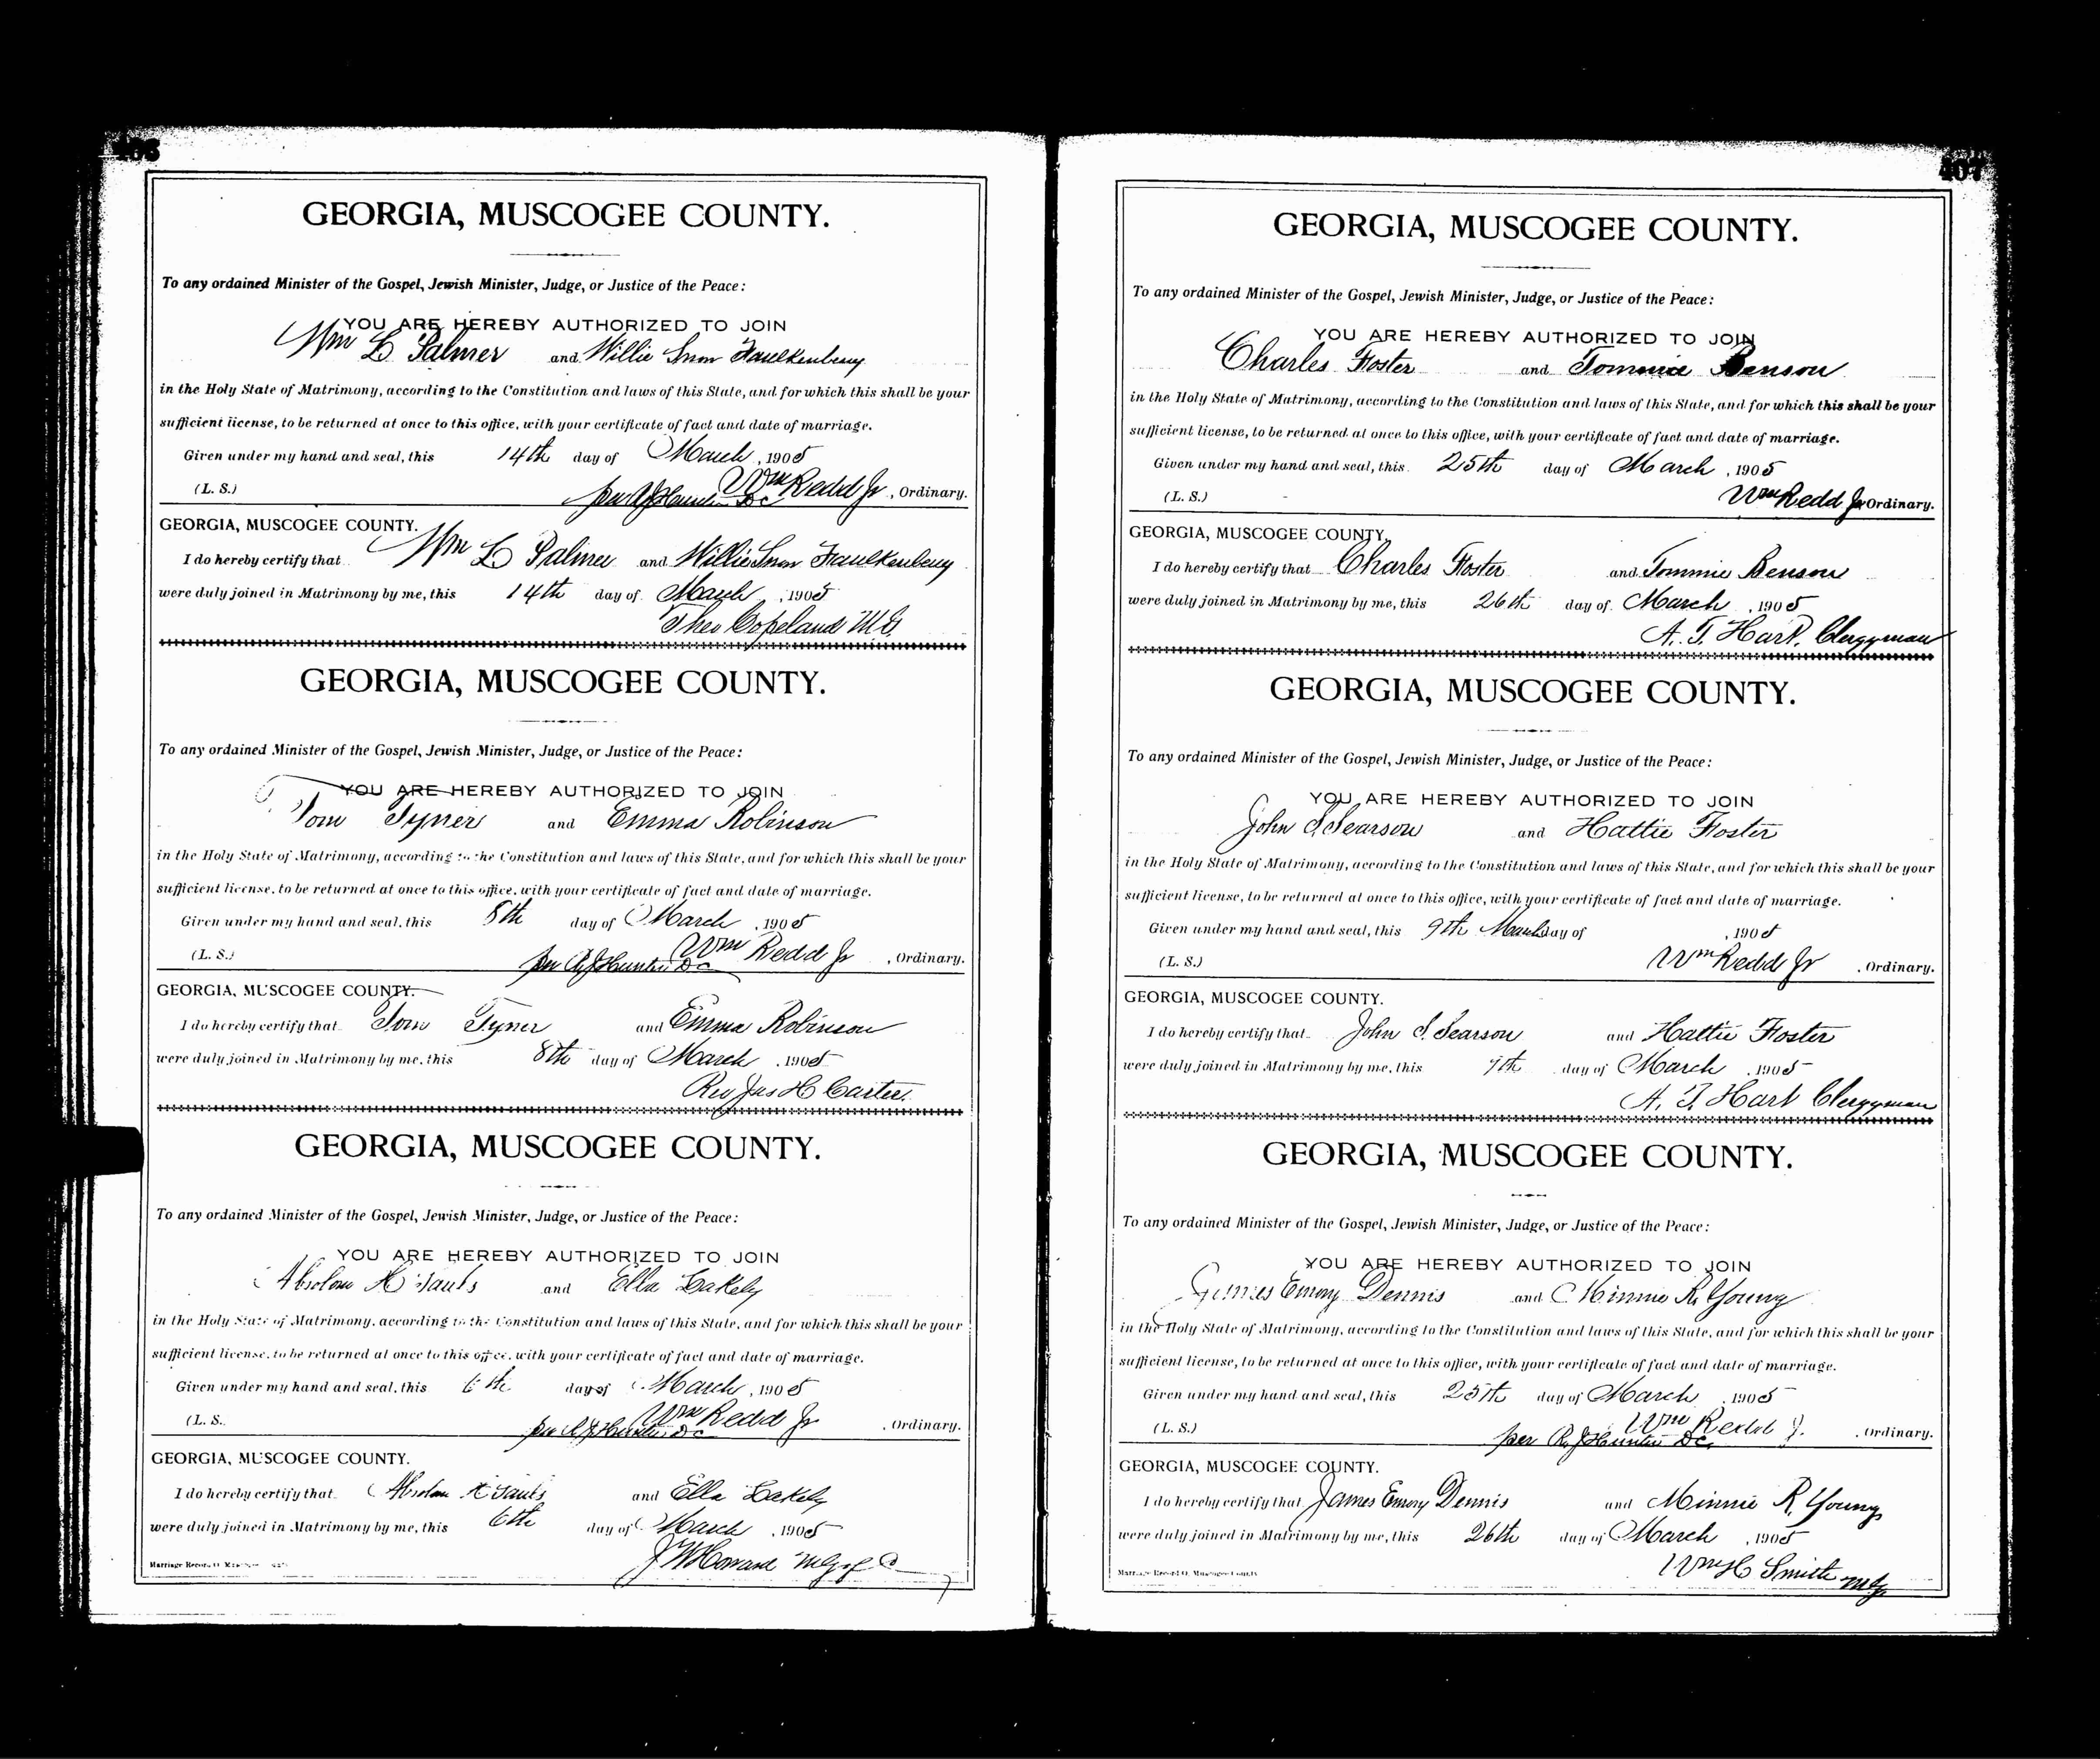 406
GEORGIA, MUSCOGEE COUNTY.
To any ordained Minister of the Gospel, Jewish Minister, Judge, or Justice of the Peace:
YOU ARE HEREBY AUTHORIZED TO JOIN
Wm L Palmer and Willie Faulkenbery
in the Holy State of Matrimony, according to the Constitution and laws of this State, and for which this shall be your
sufficient license, to be returned at once to this office, with your certificate of fact and date of marriage.
Given under my hand and seal, this 14th day of March, 1905
(L. S.) Wm Redd Jr, Ordinary.
per R J Hunter DC
GEORGIA, MUSCOGEE COUNTY.
I do hereby certify that Wm L Palmer and Willie Faulkenbery
were duly joined in Matrimony by me, this 14th day of March, 1905
Theo Copeland M.G.
GEORGIA, MUSCOGEE COUNTY.
To any ordained Minister of the Gospel, Jewish Minister, Judge, or Justice of the Peace:
YOU ARE HEREBY AUTHORIZED TO JOIN
Tom Tyner and Emma Robinson
in the Holy State of Matrimony, according to the Constitution and laws of this State, and for which this shall be your
sufficient license, to be returned at once to this office, with your certificate of fact and date of marriage.
Given under my hand and seal, this 8th day of March, 1905
(L. S.) Wm Redd Jr, Ordinary.
per R J Hunter DC
GEORGIA, MUSCOGEE COUNTY.
I do hereby certify that Tom Tyner and Emma Robinson
were duly joined in Matrimony by me, this 8th day of March, 1905
Rev Jas H Carter.
GEORGIA, MUSCOGEE COUNTY.
To any ordained Minister of the Gospel, Jewish Minister, Judge, or Justice of the Peace:
YOU ARE HEREBY AUTHORIZED TO JOIN
Absolom and Ella Lakely
in the Holy State of Matrimony, according to the Constitution and laws of this State, and for which this shall be your
sufficient license, to be returned at once to this office, with your certificate of fact and date of marriage.
Given under my hand and seal, this 6th day of March, 1905
(L. S. Wm Redd Jr, Ordinary.
per R J Hunter DC
GEORGIA, MUSCOGEE COUNTY.
I do hereby certify that Absolom and Ella Lakely
were duly joined in Matrimony by me, this 6th day of March, 1905
J W Howard
407
GEORGIA, MUSCOGEE COUNTY.
To any ordained Minister of the Gospel, Jewish Minister, Judge, or Justice of the Peace:
YOU ARE HEREBY AUTHORIZED TO JOIN
Charles Foster and Tommie Benson
in the Holy State of Matrimony, according to the Constitution and laws of this State, and for which this shall be your
sufficient license, to be returned at once to this office, with your certificate of fact and date of marriage.
Given under my hand and seal, this 25th day of March, 1905
(L. S.) Wm Redd Jr Ordinary.
GEORGIA, MUSCOGEE COUNTY.
I do hereby certify that Charles Foster and Tommie Benson
were duly joined in Matrimony by me, this 26th day of March, 1905
A. T. Hart, Clergyman
GEORGIA, MUSCOGEE COUNTY.
To any ordained Minister of the Gospel, Jewish Minister, Judge, or Justice of the Peace:
YOU ARE HEREBY AUTHORIZED TO JOIN
John S. Searson and Hattie Foster
in the Holy State of Matrimony, according to the Constitution and laws of this State, and for which this shall be your
sufficient license, to be returned at once to this office, with your certificate of fact and date of marriage.
Given under my hand and seal, this 9th March day of, 1905
(L. S.) Wm Redd Jr, Ordinary.
GEORGIA, MUSCOGEE COUNTY.
I do hereby certify that John S. Searson and Hattie Foster
were duly joined in Matrimony by me, this 9th day of March, 1905
A. T. Hart Clergyman
GEORGIA, MUSCOGEE COUNTY.
To any ordained Minister of the Gospel, Jewish Minister, Judge, or Justice of the Peace:
YOU ARE HEREBY AUTHORIZED TO JOIN
James Emory Dennis and Minnie R. Young
in the Holy State of Matrimony, according to the Constitution and laws of this State, and for which this shall be your
sufficient license, to be returned at once to this office, with your certificate of fact and date of marriage.
Given under my hand and seal, this 25th day of March, 1905
(L. S.) Wm Redd Jr, Ordinary.
per R J Hunter DC
GEORGIA, MUSCOGEE COUNTY.
I do hereby certify that James Emory Dennis and Minnie R. Young
were duly joined in Matrimony by me, this 26th day of March, 1905
Wm H Smith MG